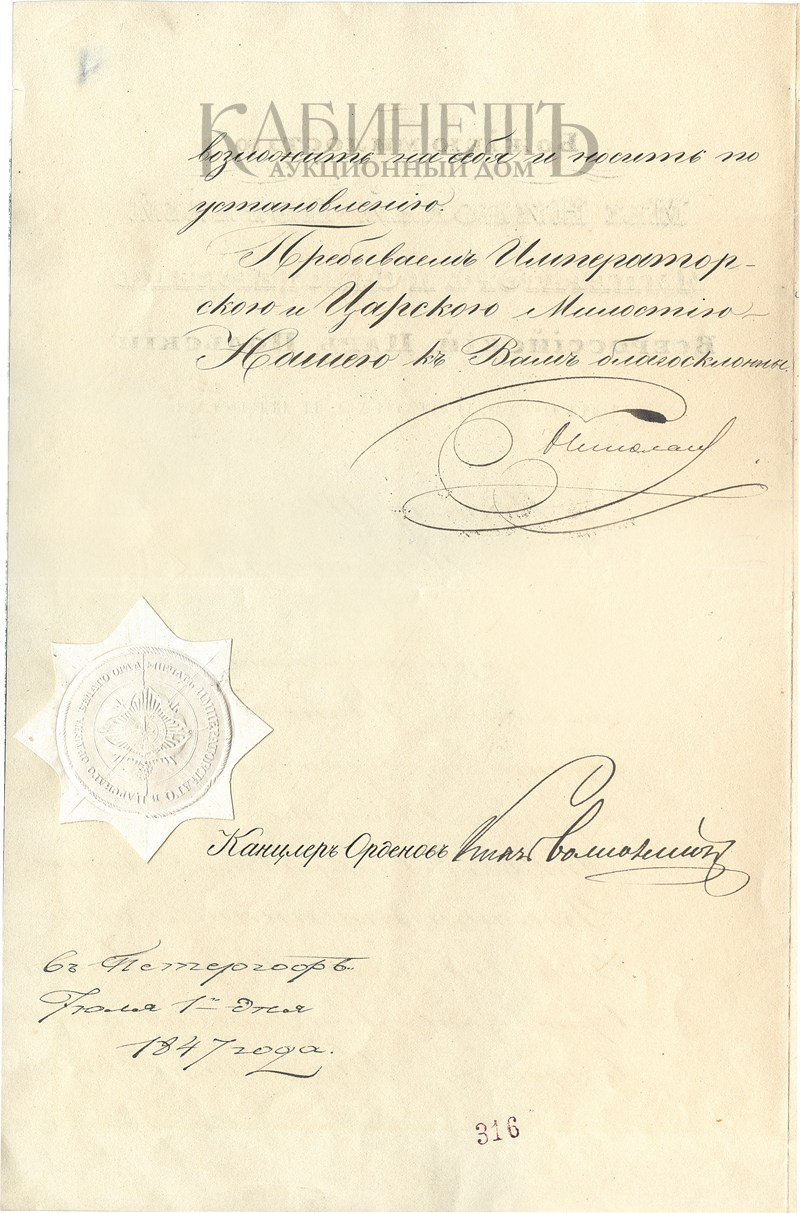 КАБИНЕТЪ
АУКЦИОННЫЙ ДОМ
возложить на себя и носить по
установленію.
Пребываемъ Император-
скою и Царскою Милостію
Нашею къ Вамъ благосклонны.
Николай
ПЕЧАТЬ ИМПЕРАТОРСКАГО И ЦАРСКАГО ОРДЕНА БѢЛАГО ОРЛА
Канцлеръ Орденовъ Князь Волконскій
въ Петергофѣ.
Іюля 1го дня
1847 года.
316